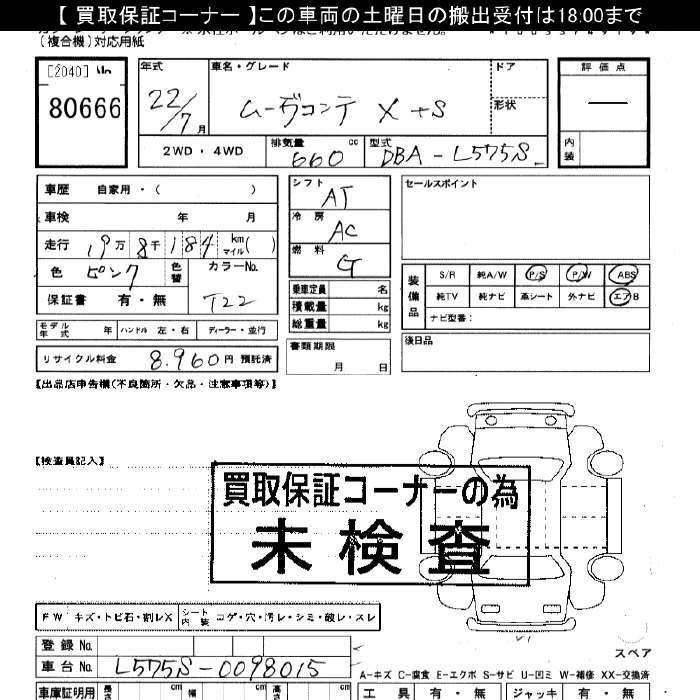 【 買取保証コーナー 】この車両の土曜日の搬出受付は18:00まで
(複合機)対応用紙
[2040]
80666
年式
22/7 月
車名・グレード
ムーヴコンテ X+S
ドア
形状
評価点
—
内装
2WD・4WD
排気量 660 cc
型式 DBA-L575S
車歴 自家用・( )
車検 年 月
走行 19万 8千 184 km マイル( )
色 ピンク 色替
カラーNo. T22
保証書 有・無
モデル年式 年 ハンドル 左・右 ディーラー・並行
リサイクル料金 8.960 円 預託済
シフト AT
冷房 AC
燃料 G
乗車定員 名
積載量 kg
総重量 kg
書類期限
月 日
セールスポイント
装備品
S/R 純A/W P/S P/W ABS
純TV 純ナビ 革シート 外ナビ エアB
ナビ型番:
後日品
【出品店申告欄(不良箇所・欠品・注意事項等)】
【検査員記入】
買取保証コーナーの為
未検査
FW キズ・トビ石・割レX
シート内装 コゲ・穴・汚レ・シミ・破レ・スレ
スペア
登録No.
車台No. L575S-0098015
A-キズ C-腐食 E-エクボ S-サビ U-凹ミ W-補修 XX-交換済
車庫証明用 長さ cm 幅 cm 高さ cm
工具 有・無 ジャッキ 有・無